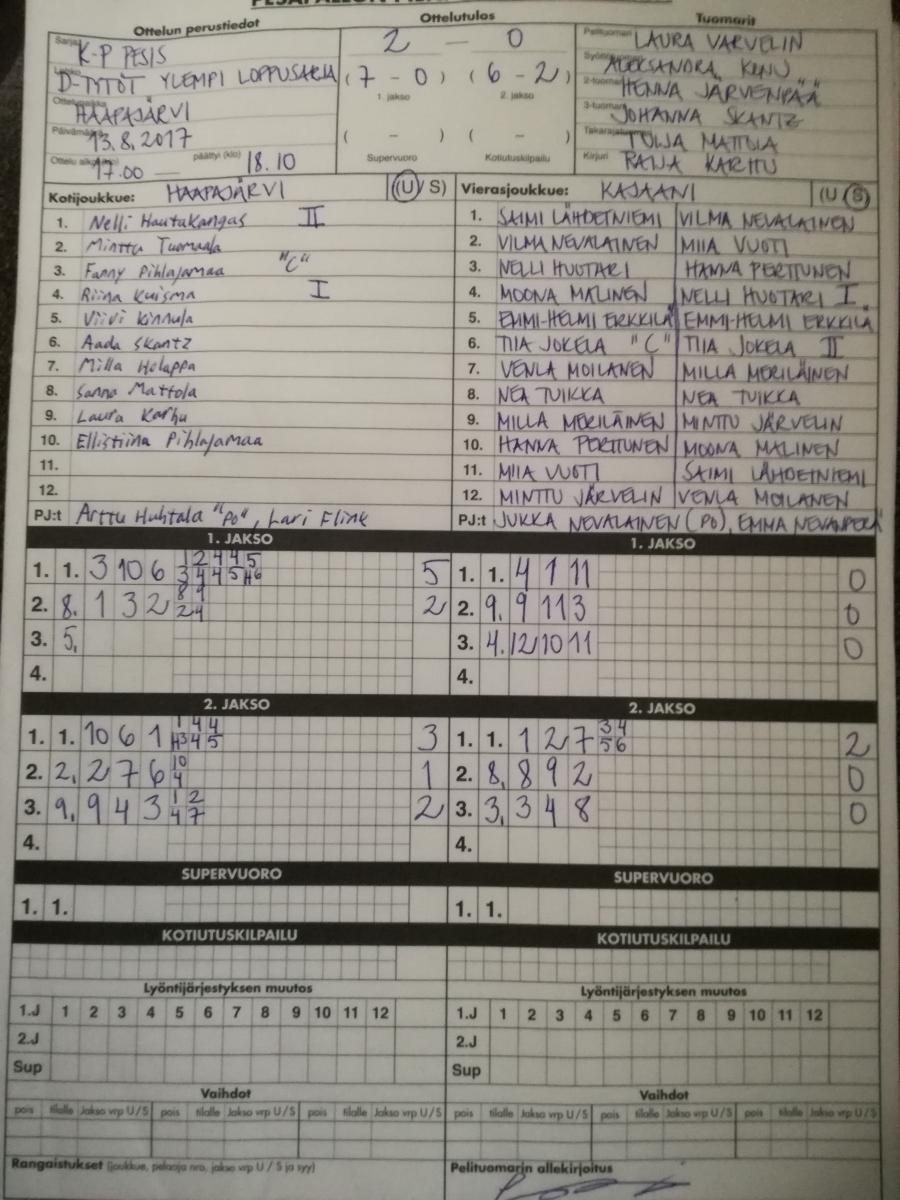 Ottelun perustiedot Ottelutulos Tuomarit
K-P PESIS 2 – 0 LAURA VARVELIN
D-TYTÖT YLEMPI LOPPUSARJA (7 – 0) (6 – 2) ALEKSANDRA
1. jakso 2. jakso HENNA JÄRVENPÄÄ
HAAPAJÄRVI 3-tuomari JOHANNA SKANTZ
13.8.2017 ( – ) ( – ) TUIJA MATTOLA
17.00 — päättyi (klo) 18.10 Supervuoro Kotiutuskilpailu Kirjuri RAIJA KARHU
Kotijoukkue: HAAPAJÄRVI (U/S) Vierasjoukkue: KAJAANI (U/S)
1. Nelli Hautakangas II 1. SAIMI LÄHDETNIEMI VILMA NEVALAINEN
2. Minttu Tuomaala 2. VILMA NEVALAINEN MIIA VUOTI
3. Fanny Pihlajamaa "C" 3. NELLI HUOTARI HANNA PERTTUNEN
4. Riina Kuisma I 4. MOONA MALINEN NELLI HUOTARI I
5. Viivi Kinnula 5. EMMI-HELMI ERKKILÄ EMMI-HELMI ERKKILÄ
6. Aada Skantz 6. TIIA JOKELA "C" TIIA JOKELA II
7. Milla Holappa 7. VENLA MOILANEN MILLA MERILÄINEN
8. Sanna Mattola 8. NEA TUIKKA NEA TUIKKA
9. Laura Karhu 9. MILLA MERILÄINEN MINTTU JÄRVELIN
10. Ellistiina Pihlajamaa 10. HANNA PERTTUNEN MOONA MALINEN
11. 11. MIIA VUOTI SAIMI LÄHDETNIEMI
12. 12. MINTTU JÄRVELIN VENLA MOILANEN
PJ:t Arttu Huhtala "PO", Lari Flink PJ:t JUKKA NEVALAINEN (PO), EMMA NEVANPERÄ
1. JAKSO 1. JAKSO
1. 1. 3 10 6 1/3 2/4 4/4 4/5 5/H6 5 1. 1. 4 1 11 0
2. 8. 1 3 2 8/2 9/4 2 2. 9. 9 11 3 0
3. 5. 3. 4. 12 10 11 0
4. 4.
2. JAKSO 2. JAKSO
1. 1. 10 6 1 1/H3 4/4 4/5 3 1. 1. 1 2 7 3/5 4/6 2
2. 2. 2 7 6 10/4 1 2. 8. 8 9 2 0
3. 9. 9 4 3 1/4 2/7 2 3. 3. 3 4 8 0
4. 4.
SUPERVUORO SUPERVUORO
1. 1. 1. 1.
KOTIUTUSKILPAILU KOTIUTUSKILPAILU
Lyöntijärjestyksen muutos Lyöntijärjestyksen muutos
1.J 1 2 3 4 5 6 7 8 9 10 11 12 1.J 1 2 3 4 5 6 7 8 9 10 11 12
2.J 2.J
Sup Sup
Vaihdot Vaihdot
pois tilalle Jakso vrp U/S pois tilalle Jakso vrp U/S pois tilalle Jakso vrp U/S pois tilalle Jakso vrp U/S pois tilalle Jakso vrp U/S pois tilalle Jakso vrp U/S
Rangaistukset (joukkue, pelaaja nro, jakso vrp U/S ja syy) Pelituomarin allekirjoitus